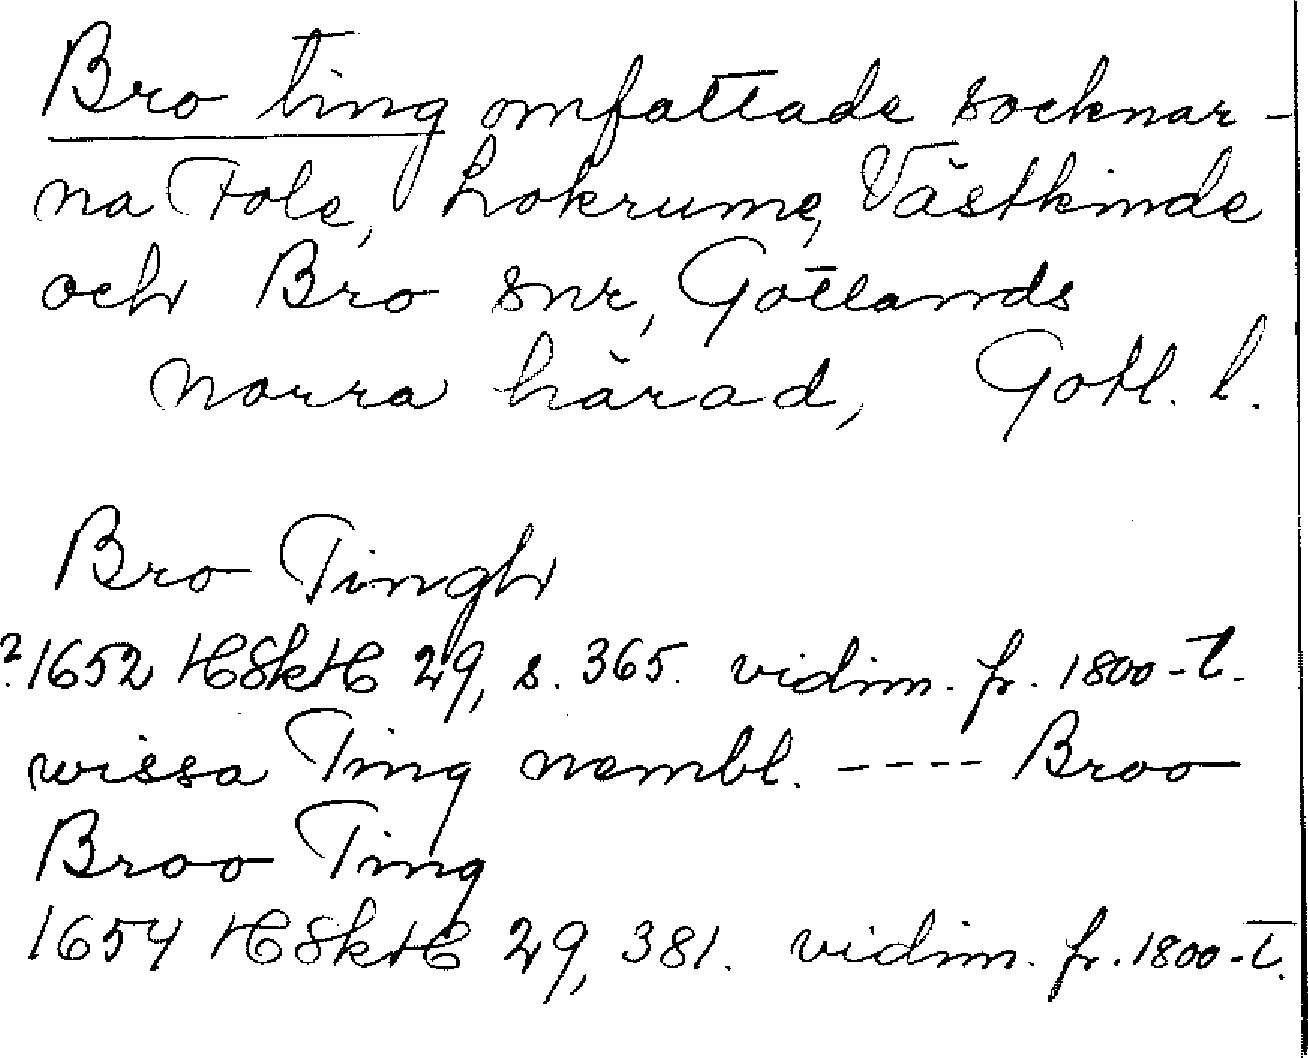 Bro ting omfattade socknar-
na Fole, Lokrume, Västkinde
och Bro snr, Gotlands
norra härad, Gotl. l.
Bro Tingh
?1652 HSkH 29, s. 365. vidim. fr. 1800-t.
wissa Ting nembl. ---- Broo
Broo Ting
1654 HSkH 29, 381. vidim. fr. 1800-t.